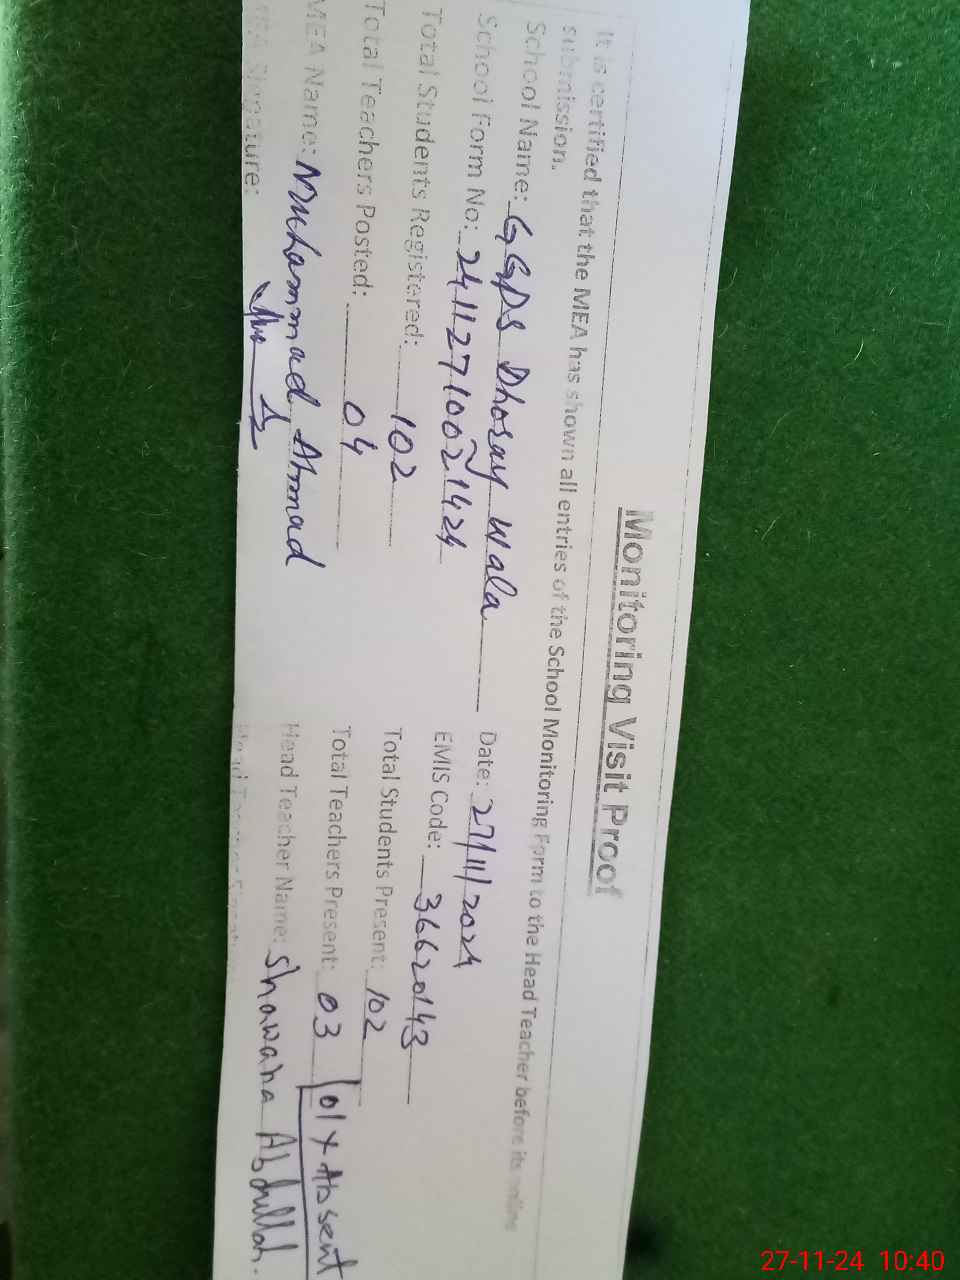 Monitoring Visit Proof
It is certified that the MEA has shown all entries of the School Monitoring Form to the Head Teacher before its online
submission.
School Name: GGPS Dhoray Wala Date: 27/11/2024
School Form No: 24112710021424 EMIS Code: 36620143
Total Students Registered: 102 Total Students Present: 102
Total Teachers Posted: 04 Total Teachers Present: 03 01 x Absent
MEA Name: Muhammad Ahmad Head Teacher Name: Shawana Abdullah.
MEA Signature:
27-11-24 10:40